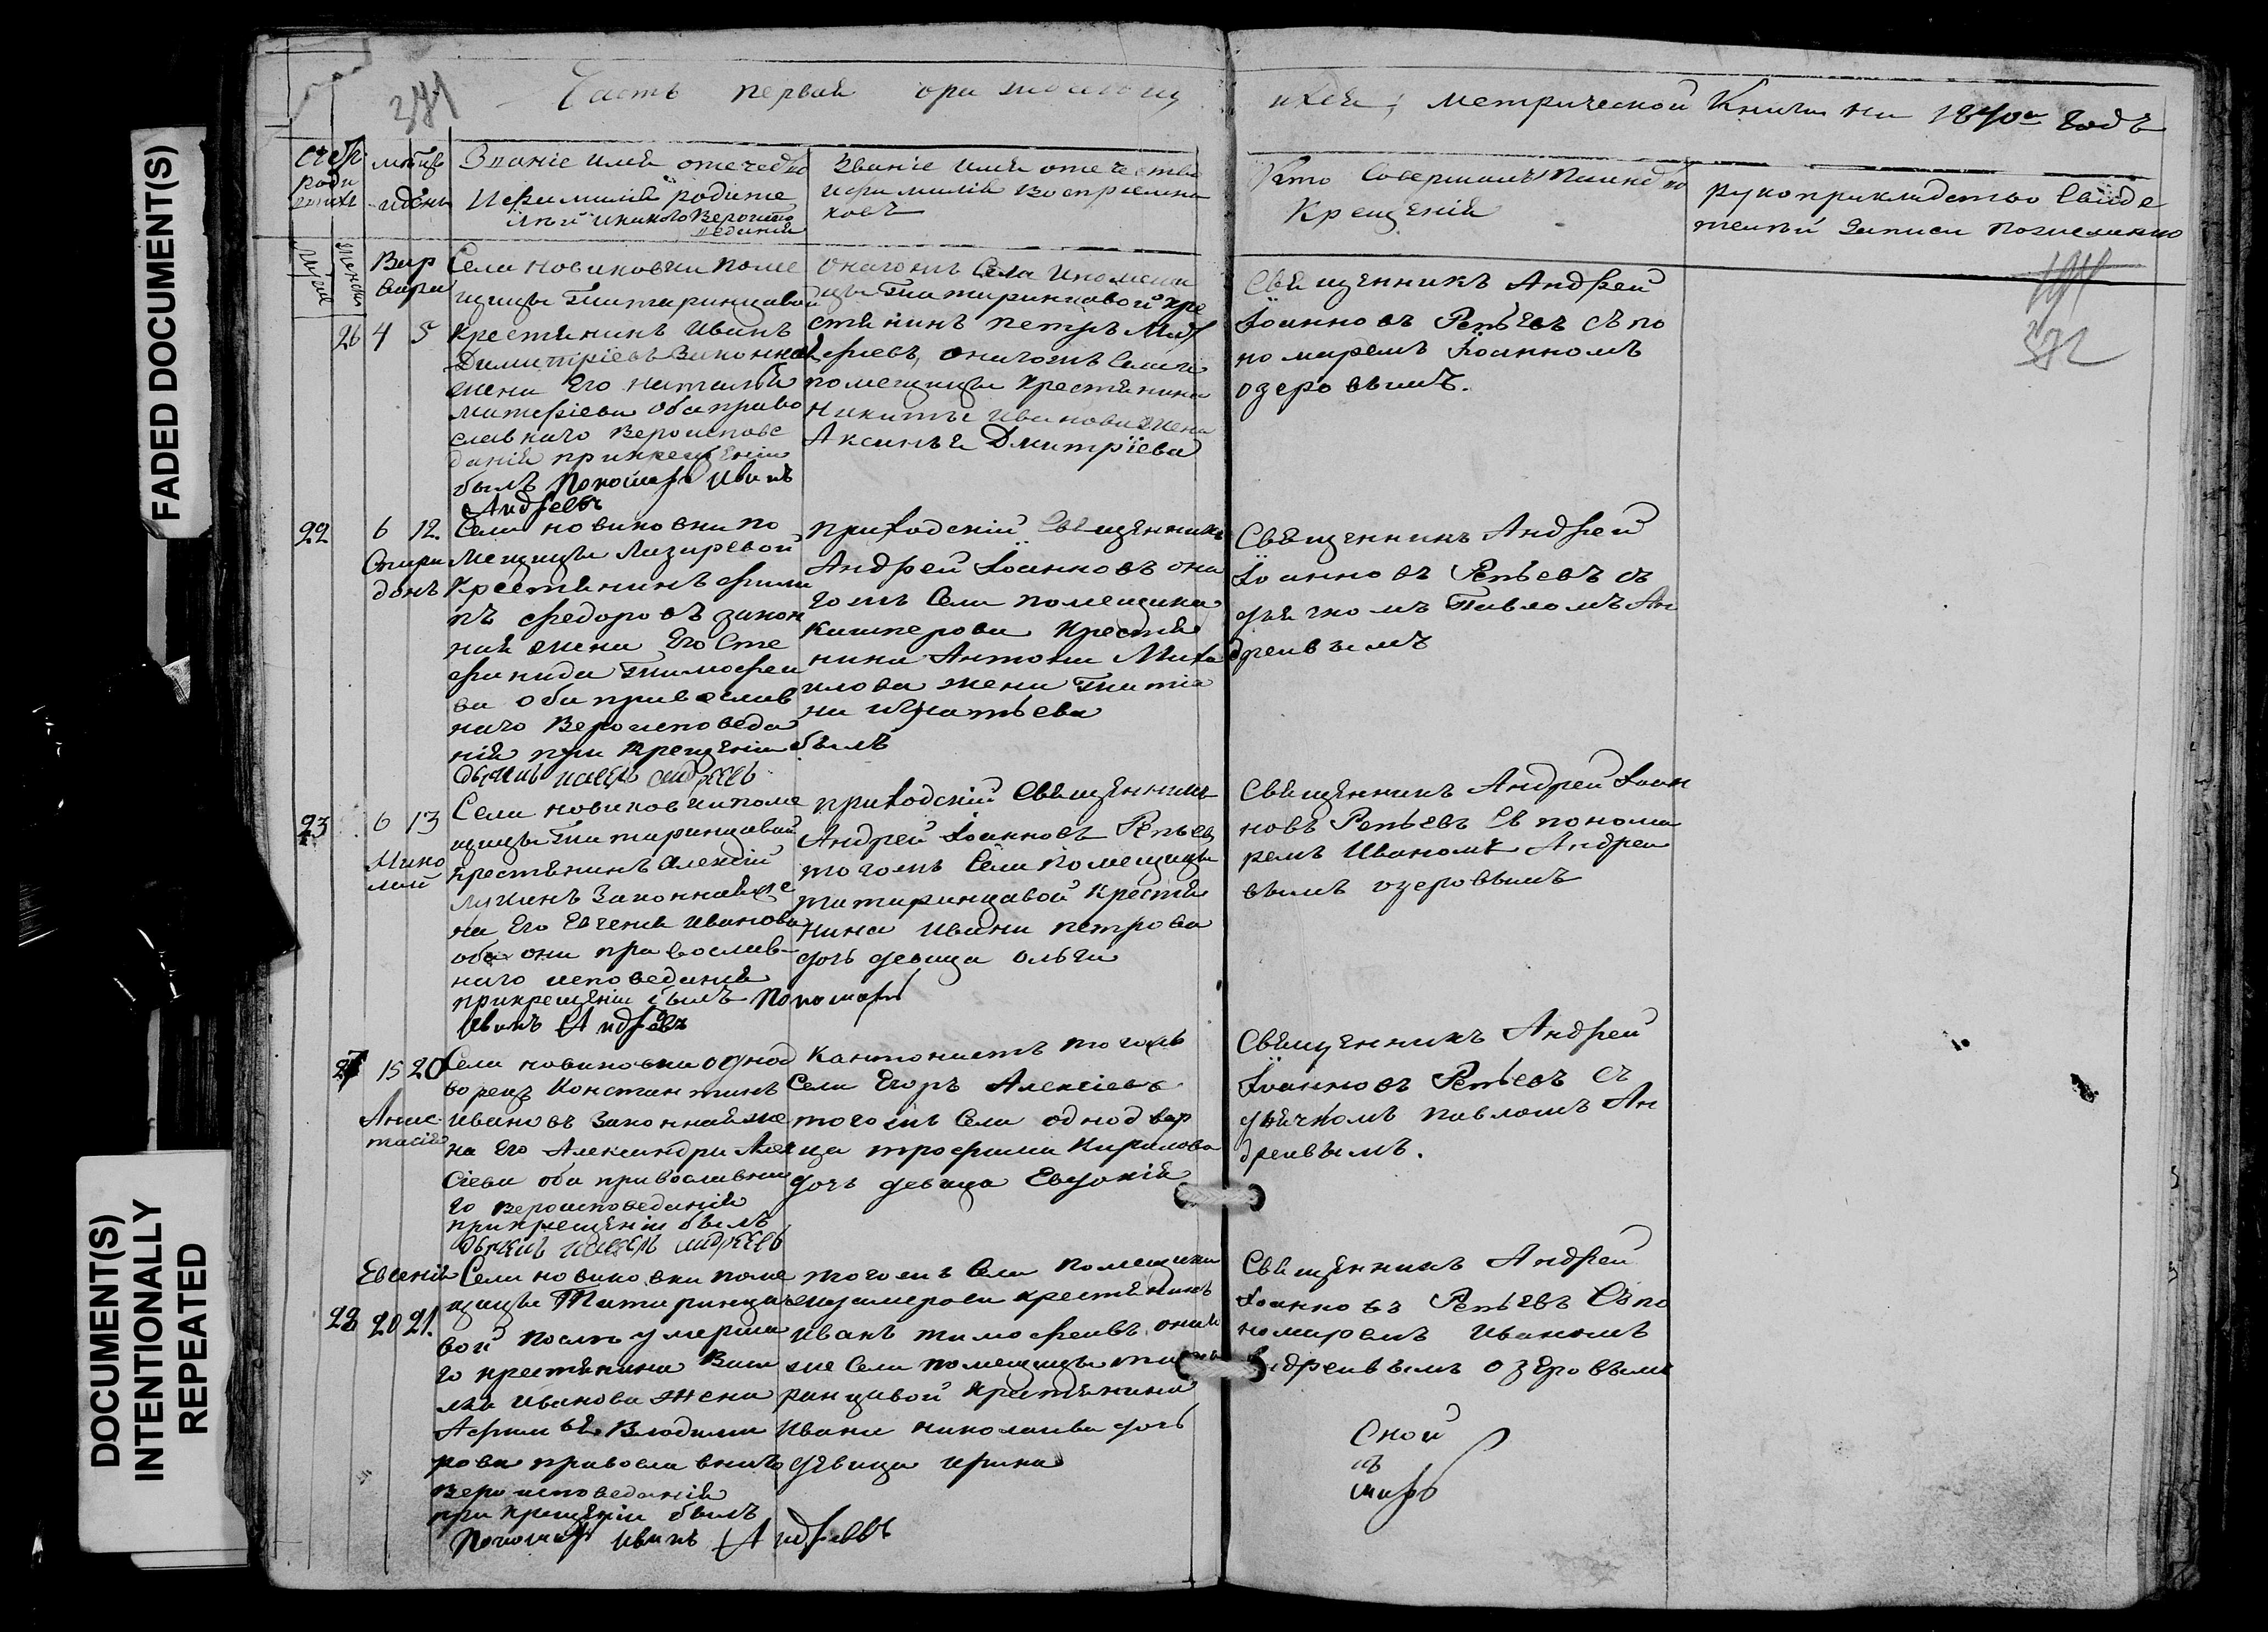 FADED DOCUMENT(S)
DOCUMENT(S)
INTENTIONALLY
REPEATED
381
Часть первая о
метрической Книги на 1840й годъ
Званіе имя отечество
и фамилія родите
лей и какого Вероиспо
веданія
Званіе имя отечество
и фамилія воспріемни
ковъ
Кто Совершалъ
Крещенія
рукоприкладство Свиде
телей записи по желанию
382
Вар
вара
26 4 5
Села новиковки поме
щицы Татаринцавой
Крестянинъ Иванъ
Димитріевъ Законная
жена Его наталья
Матфіева оба право
славнаго Вероиспове
данія прикрещеніи
былъ Пономарь Иванъ
Андреевъ
онагожъ Села и помещи
цы Татаринцавой кре
стянинъ петръ
онагожъ Села
помещицы Крестянина
Никиты Иванова жена
Аксинья Дмитрїева
Священникъ Андрей
Іоанновъ Репьевъ съ по
номаремъ Іоанномъ
озеровымъ.
22 6 12.
Спири
донъ
Села новиковки по
мещицы Лазаревой
Крестянинъ фили
пъ федоровъ закон
ная жена Его Сте
фанида Тимофеи
ва оба православ
наго Вероисповеда
нія при Крещеніи былъ
дьячикъ павелъ андреевъ
приходскій Священникъ
Андрей Іоанновъ она
гожъ Села помещика
Кашперова Крестя
нина Антона Миха
илова жена Татиа
на Игнатьева
Священникъ Андрей
Іоанновъ Репьевъ съ
дьячкомъ Павломъ Ан
дреивымъ
23 6 13
Нико
лай
Села новиковки поме
щицы Татаринцавой
крестянинъ Алексій
Законная же
на Его Евгенія Иванова
оба они православ-
наго исповеданія
прикрещеніи былъ Пономарь
Иванъ Андреевъ
приходскій Священникъ
Андрей Іоанновъ Репьевъ
тогожъ Села Помещицы
татаринцавой Крестя
нина Ивана петрова
дочь девица Ольга
Священникъ Андрей Іоан
новъ Репьевъ Съ понома
ремъ Иваномъ Андреи
вымъ озеровымъ
27 15 20
Анас
тасія
Села новиковки однод
ворецъ Константинъ
Ивановъ Законная же
на Его Александра Алек
сіева оба православна
го вероисповеданія
прикрещеніи былъ
дьячекъ павелъ андреевъ
Кантонистъ тогожъ
Села Егоръ Алексіевъ
тогожъ Села однодвор
ца трофима Кирилова
дочь девица Евдокія
Священникъ Андрей
Іоанновъ Репьевъ съ
дьячкомъ павломъ Ан
дреивымъ.
Евсенія
20 21.
Села новиковки поме
щицы Татаринца
вой после умерша
го крестянина Васи
лья Иванова жена
Афимья Владими
рова православнаго
Вероисповеданія
при Крещеніи былъ
Пономарь Иванъ Андреевъ
тогожъ Села помещика
крестянинъ
Иванъ тимофеивъ, онаго
же Села помещицы тата
ринцавой крестянина
Ивана николаива дочь
девица Ирина
Священникъ Андрей
Іоанновъ Репьевъ Съ по
номаремъ Иваномъ
Андреивымъ озеровымъ